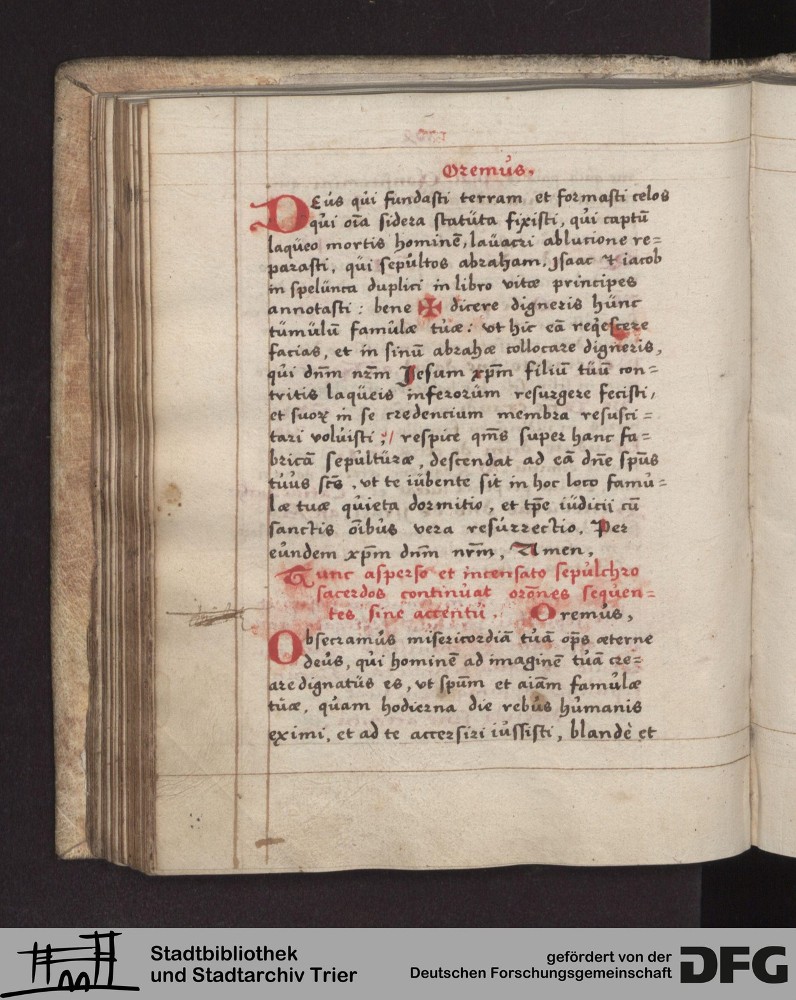 Oremus.
DEus qui fundasti terram et formasti celos
qui oīa sidera statuta fixisti, qui captū
laqueo mortis hominē, lauacri ablucione re=
parasti, qui sepultos abraham, Jsaac & iacob
in spelunca duplici in libro vitæ principes
annotasti: bene ✠ dicere digneris hunc
tumulū famulæ tuæ: vt hic eā reqescere
facias, et in sinū abrahæ collocare digneris,
qui dnm̄ nr̄m Jesum xp̄m filiū tuū con=
tritis laqueis inferorum resurgere fecisti,
et suoꝝ in se credencium membra resusci=
tari voluisti; respice qm̄s super hanc fa=
bricā sepulturæ, descendat ad eā dn̄e sp̄us
tuus sc̄s, vt te iubente sit in hoc loco famu=
læ tuæ quieta dormitio, et tp̄e iudicii cū
sanctis oībus vera resurrectio. Per
eundem xp̄m dnm̄ nr̄m, Amen,
Tunc asperso et incensato sepulchro
sacerdos continuat orōnes sequen=
tes sine accentu. Oremus,
Obsecramus misericordiā tuā op̄s æterne
deus, qui hominē ad imaginē tuā cre=
are dignatus es, vt sp̄um et aīam famulæ
tuæ, quam hodierna die rebus humanis
eximi, et ad te accersiri iussisti, blandè et
Stadtbibliothek
und Stadtarchiv Trier
gefördert von der
Deutschen Forschungsgemeinschaft
DFG